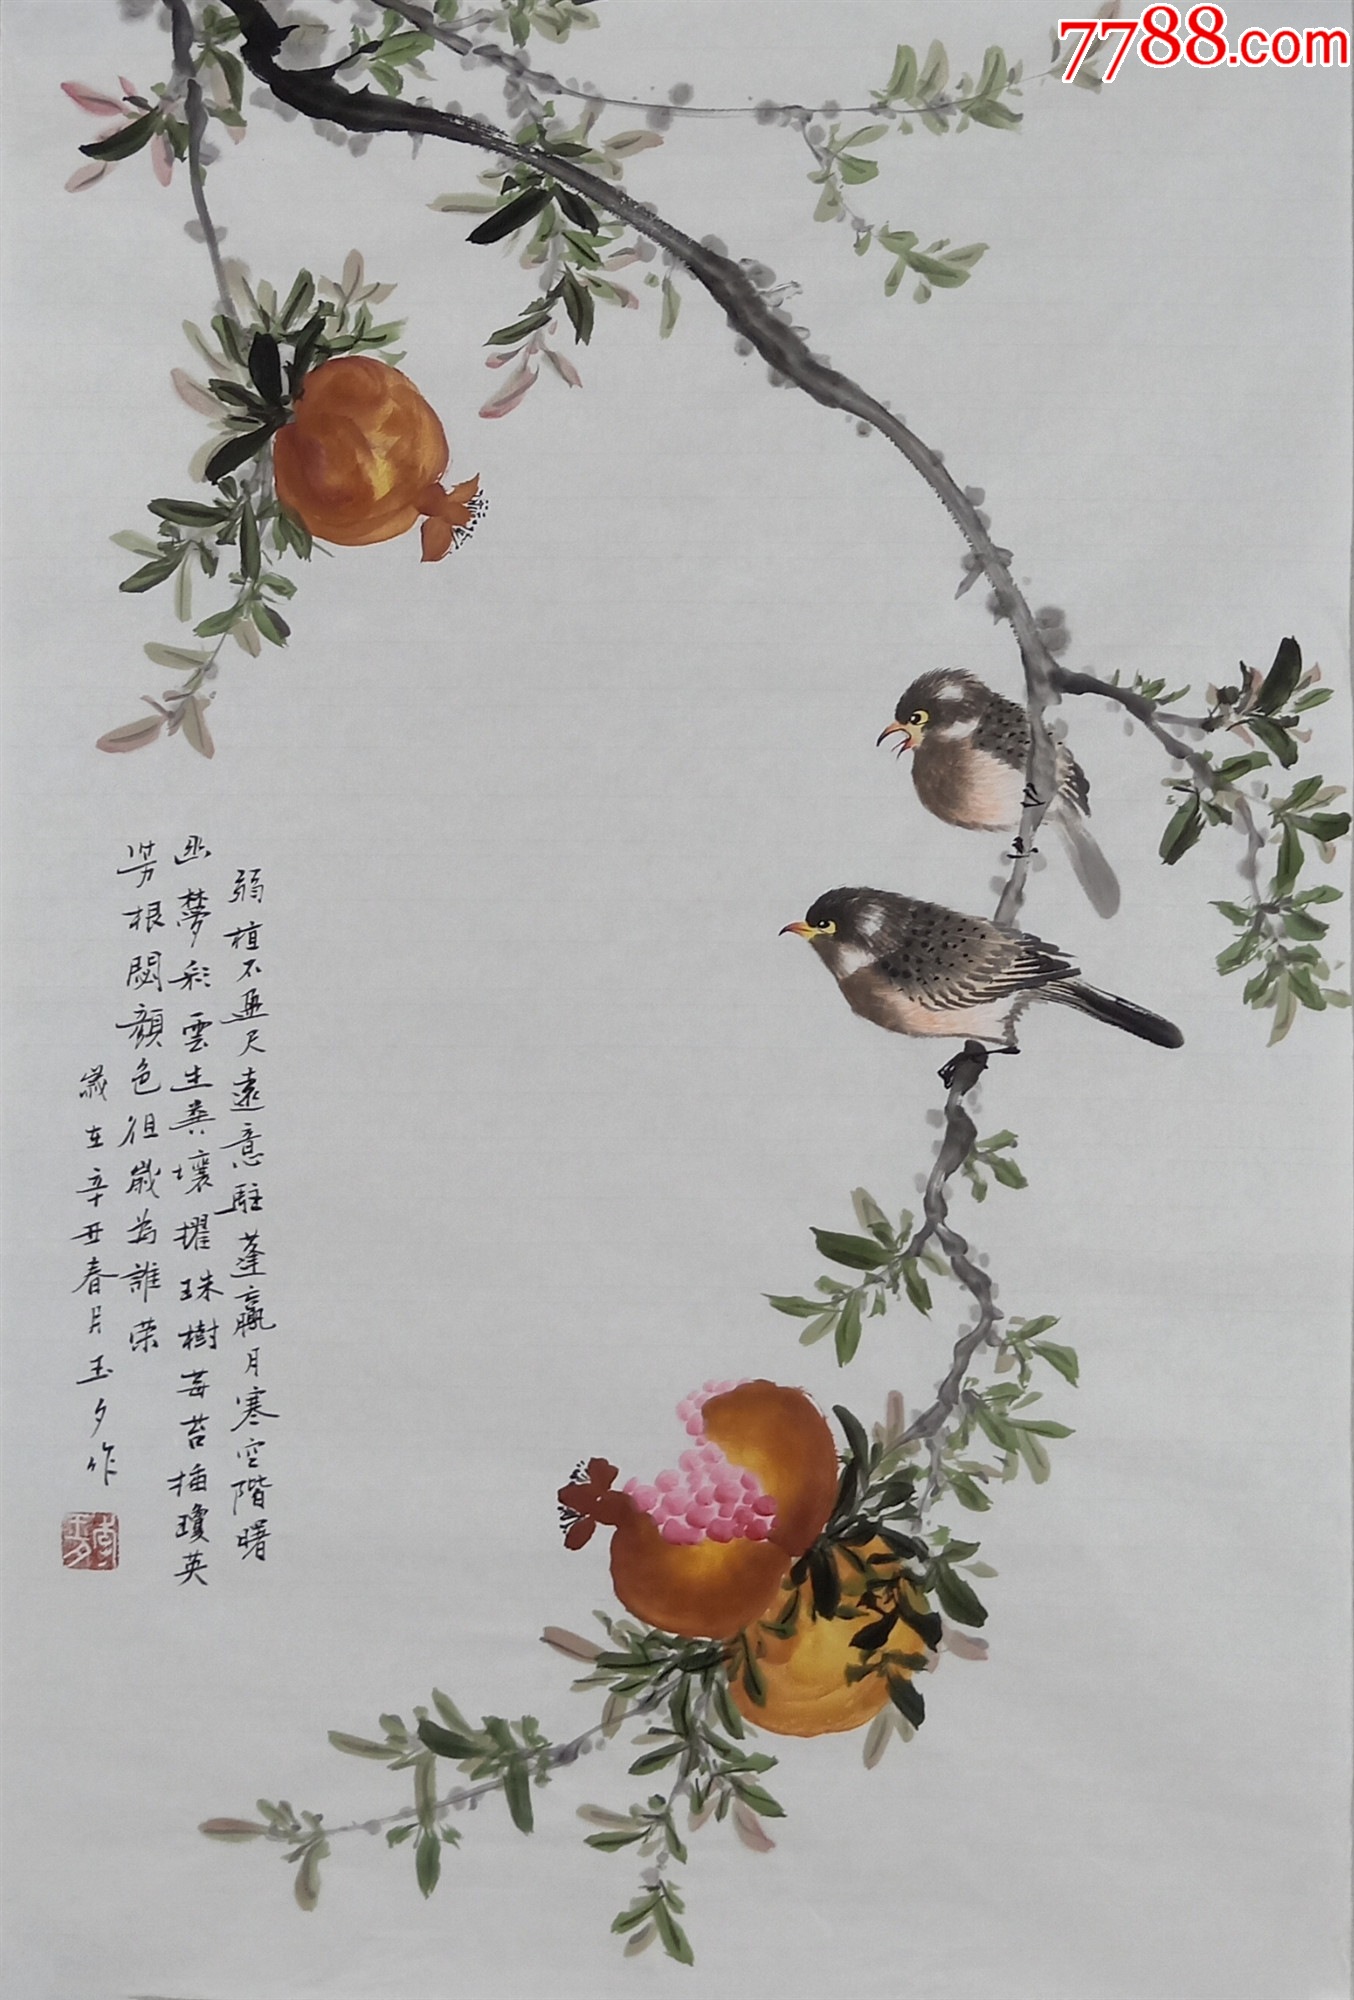 7788.com
弱植不盈尺遠意駐蓬瀛月寒空階曙
幽夢彩雲生糞壤擢珠樹莓苔插瓊英
芳根閟顏色徂歲為誰荣
歲在辛丑春月玉夕作